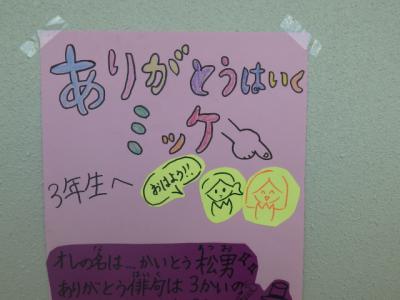 ありがとうはいく
ミッケ
3年生へ
おはよう!!
オレの名は…かいとう松男々々
ありがとう俳句は3かいの